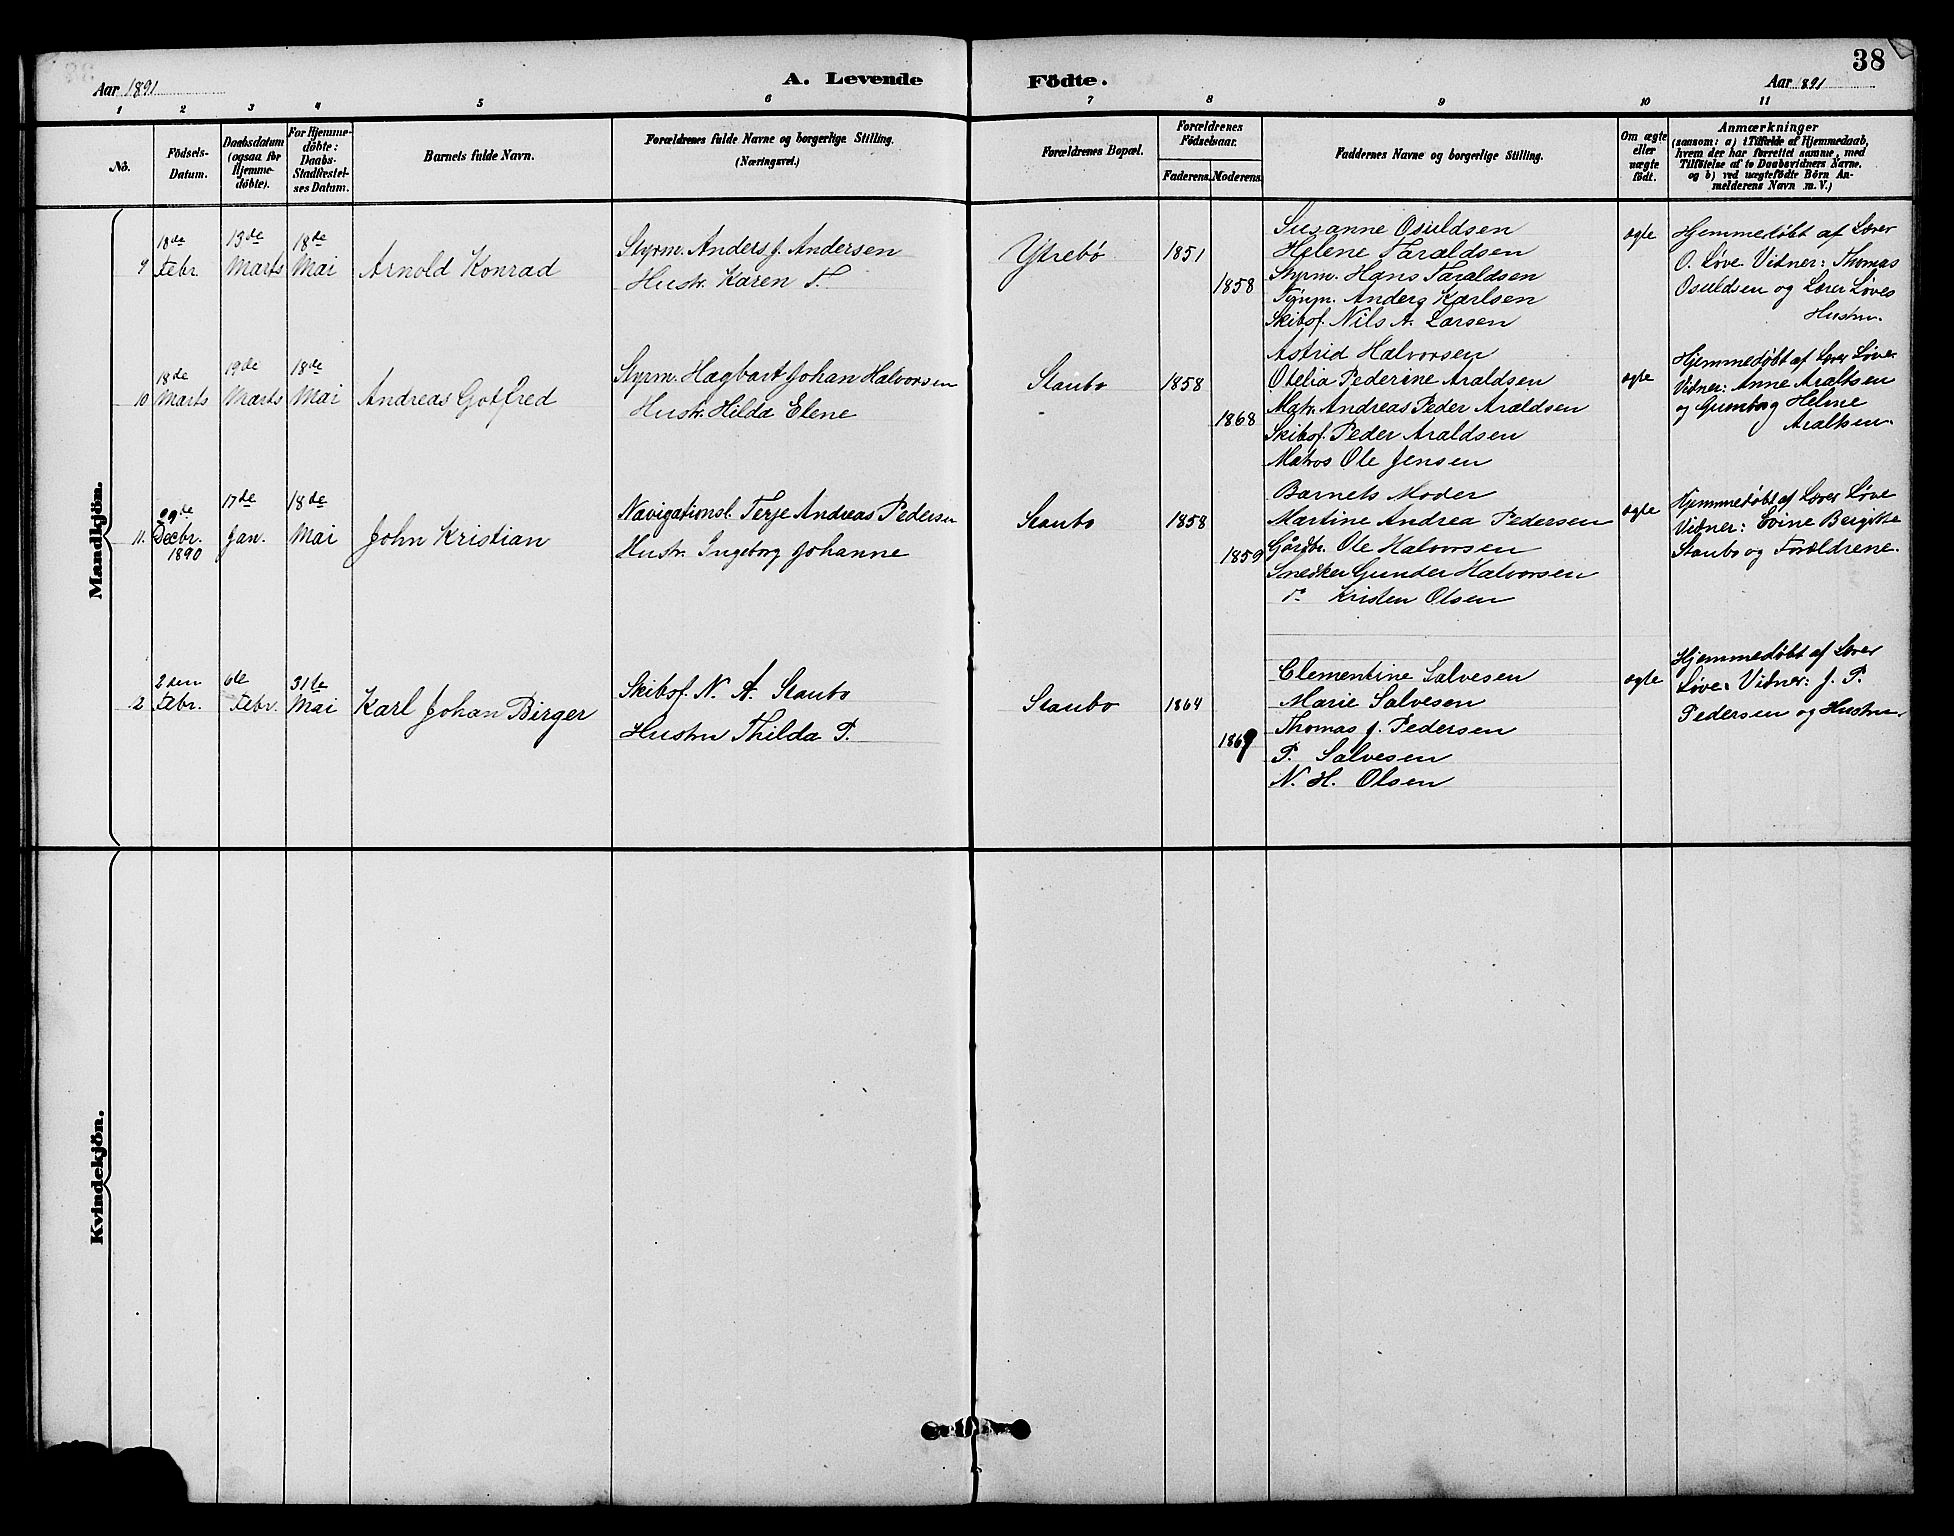 38
Aar 1891
A. Levende Födte.
Aar 1891
1 2 3 4 5 6 7 8 9 10 11
No.
Födsels-
Datum.
Daabsdatum
(ogsaa for
Hjemme-
döbte).
For Hjemme-
döbte:
Daabs-
Stadfæstel-
ses Datum.
Barnets fulde Navn.
Forældrenes fulde Navne og borgerlige Stilling.
(Næringsvei.)
Forældrenes Bopæl.
Forældrenes
Födselsaar.
Faderens. Moderens.
Faddernes Navne og borgerlige Stilling.
Om ægte
eller
uægte
födt.
Anmærkninger
(saasom: a) i Tilfælde af Hjemmedaab,
hvem der har forrettet samme, med
Tilföielse af to Daabsvidners Navne,
og b) ved uægtefödte Börn An-
melderens Navn m. V.)
Mandkjön.
9
18de
Febr.
13de
Marts
18de
Mai
Arnold Konrad
Styrm. Anders J. Andersen
Hustr. Karen T.
Ytrebø
1851
1858
Susanne Osuldsen
Helene Taraldsen
Styrm. Hans Taraldsen
Tømm. Anders Karlsen
Skibsf. Nils A. Larsen
ægte
Hjemmedøbt af Lærer
O. Løve. Vidner: Thomas
Osuldsen og Lærer Løves
Hustru.
10
18de
Marts
19de
Marts
18de
Mai
Andreas Gotfred
Styrm. Hagbart Johan Halvorsen
Hustr. Hilda Elene
Staubo
1858
1868
Astrid Halvorsen
Otelia Pederine Araldsen
Matr. Andreas Peder Araldsen
Skibsf. Peder Araldsen
Matros Ole Jensen
ægte
Hjemmedøbt af Lærer Løve.
Vidner: Anne Araltsen
og Gunborg Helene
Araltsen.
11.
29de
Decbr.
1890
17de
Jan.
18de
Mai
John Kristian
Navigationsl. Terje Andreas Pedersen
Hustr. Ingeborg Johanne
Staubo
1858
1859
Barnets Moder
Martine Andrea Pedersen
Gårdbr. Ole Halvorsen
Snedker Gunder Halvorsen
do Kristen Olsen
ægte
Hjemmedøbt af Lærer Løve
Vidner: Evine Bergitte
Staubo og Forældrene.
12
2den
Febr.
6te
Febr.
31te
Mai
Karl Johan Birger
Skibsf. N. A. Staubo
Hustru Thilda P.
Staubo
1864
1869
Clementine Salvesen
Marie Salvesen
Thomas J. Pedersen
P. Salvesen
N. H. Olsen
ægte
Hjemmedøbt af Lærer
Løve. Vidner: J. P.
Pedersen og Hustru.
Kvindekjön.